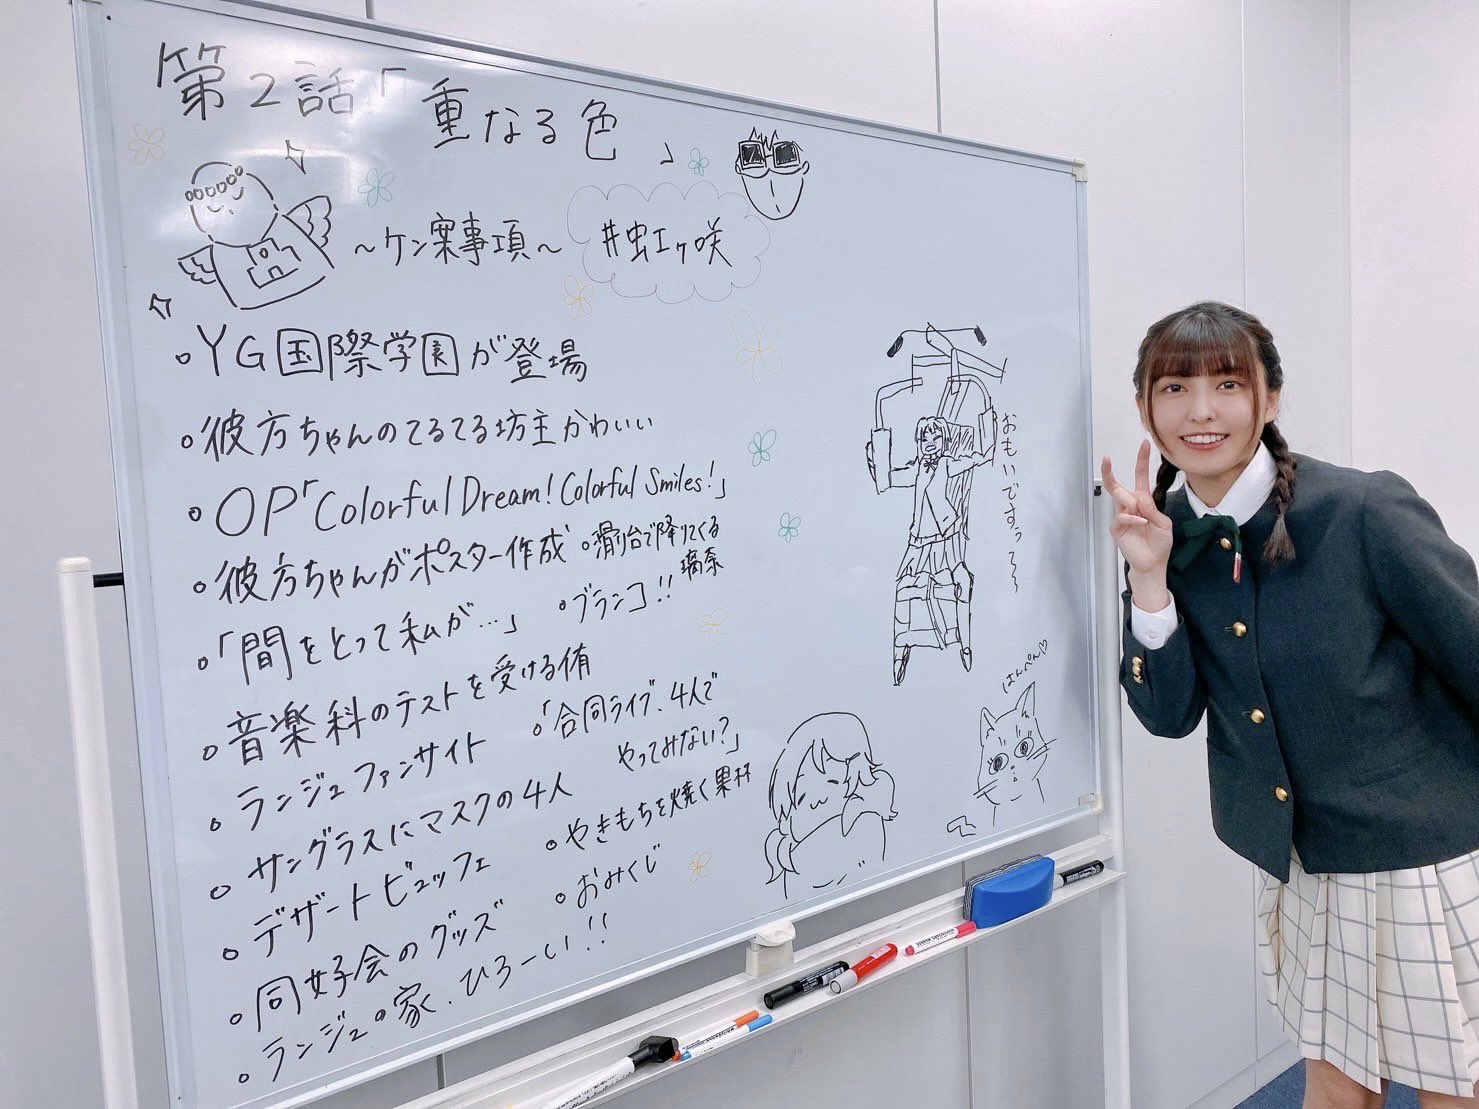 第2話「重なる色」
～ケン案事項～
#虹ヶ咲
。YG国際学園が登場
。彼方ちゃんのてるてる坊主かわいい
。OP「Colorful Dream! Colorful Smiles!」
。彼方ちゃんがポスター作成
。滑り台で降りてくる
璃奈
。「間をとって私が…」
。ブランコ!!
。音楽科のテストを受ける侑
。ランジュファンサイト
。「合同ライブ、4人で
やってみない?」
。サングラスにマスクの4人
。やきもちを焼く果林
。デザートビュッフェ
。おみくじ
。同好会のグッズ
。ランジュの家、ひろーい!!
おもいですぅ~~
はんぺん♡